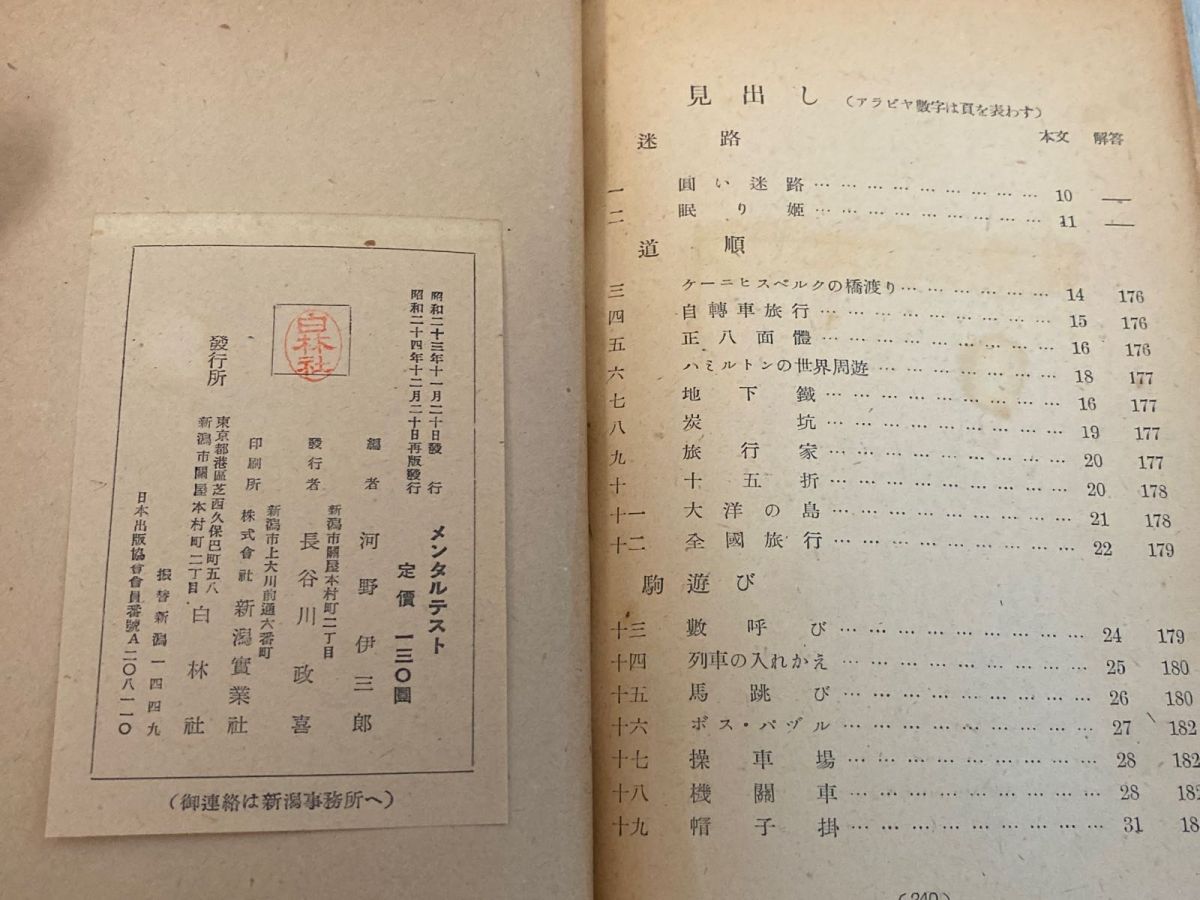 昭和二十三年十一月二十日發行
昭和二十四年十二月二十日再版發行
メンタルテスト
定價 一三〇圓
編者 河野伊三郎
新潟市關屋本村町二丁目
發行者 長谷川政喜
新潟市上大川前通六番町
印刷所 株式會社 新潟實業社
白林社
發行所
東京都港區芝西久保巴町五八
新潟市關屋本村町二丁目
白林社
振替新潟一四四九
日本出版協會會員番號A二〇八一一〇
(御連絡は新潟事務所へ)
見出し (アラビヤ數字は頁を表わす)
迷路 本文 解答
一 圓い迷路 … … … … … … … … 10 —
二 眠り姬 … … … … … … … … 11 —
道順
三 ケーニヒスベルクの橋渡り… … … … … … 14 176
四 自轉車旅行 … … … … … … … … 15 176
五 正八面體 … … … … … … … … 16 176
六 ハミルトンの世界周遊 … … … … … … 18 177
七 地下鐵 … … … … … … … … 16 177
八 炭坑 … … … … … … … … 19 177
九 旅行家 … … … … … … … … 20 177
十 十五折 … … … … … … … … 20 178
十一 大洋の島 … … … … … … … … 21 178
十二 全國旅行 … … … … … … … … 22 179
駒遊び
十三 數呼び … … … … … … … … 24 179
十四 列車の入れかえ … … … … … … … … 25 180
十五 馬跳び … … … … … … … … 26 180
十六 ボス・パヅル … … … … … … … … 27 182
十七 操車場 … … … … … … … … 28 182
十八 機關車 … … … … … … … … 28 182
十九 帽子掛 … … … … … … … … 31 18
(240)